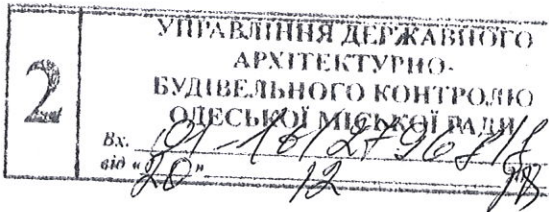 2
УПРАВЛІННЯ ДЕРЖАВНОГО
АРХІТЕКТУРНО-
БУДІВЕЛЬНОГО КОНТРОЛЮ
ОДЕСЬКОЇ МІСЬКОЇ РАДИ
Вх. 01-16/2796
від «20» 12 18